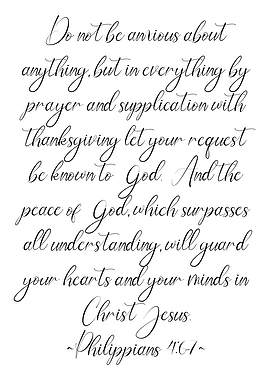 Do not be anxious about
anything, but in everything by
prayer and supplication with
thanksgiving let your request
be known to God. And the
peace of God, which surpasses
all understanding, will guard
your hearts and your minds in
Christ Jesus.
~Philippians 4:6-7~